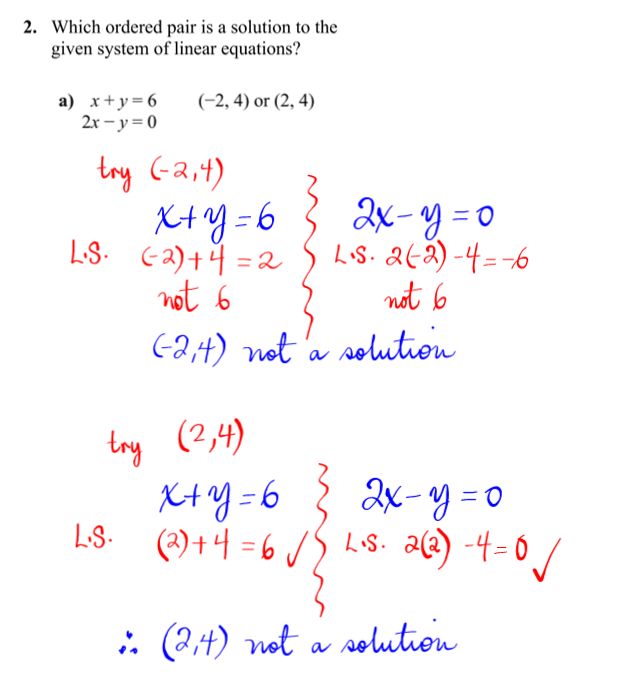 2. Which ordered pair is a solution to the
given system of linear equations?
a) x + y = 6 (−2, 4) or (2, 4)
2x − y = 0
try (-2,4)
x+y=6 2x-y=0
L.S. (-2)+4=2 L.S. 2(-2)-4=-6
not 6 not 6
(-2,4) not a solution
try (2,4)
x+y=6 2x-y=0
L.S. (2)+4=6 ✓ L.S. 2(2)-4=0 ✓
∴ (2,4) not a solution